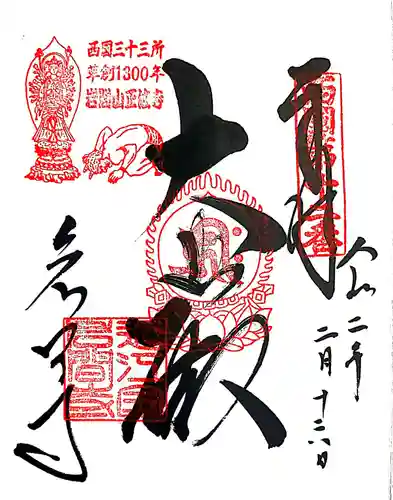 西国三十三所
草創1300年
岩間山正法寺
奉拝
西国第十二番
大悲殿
岩間寺
令和二年
二月十六日